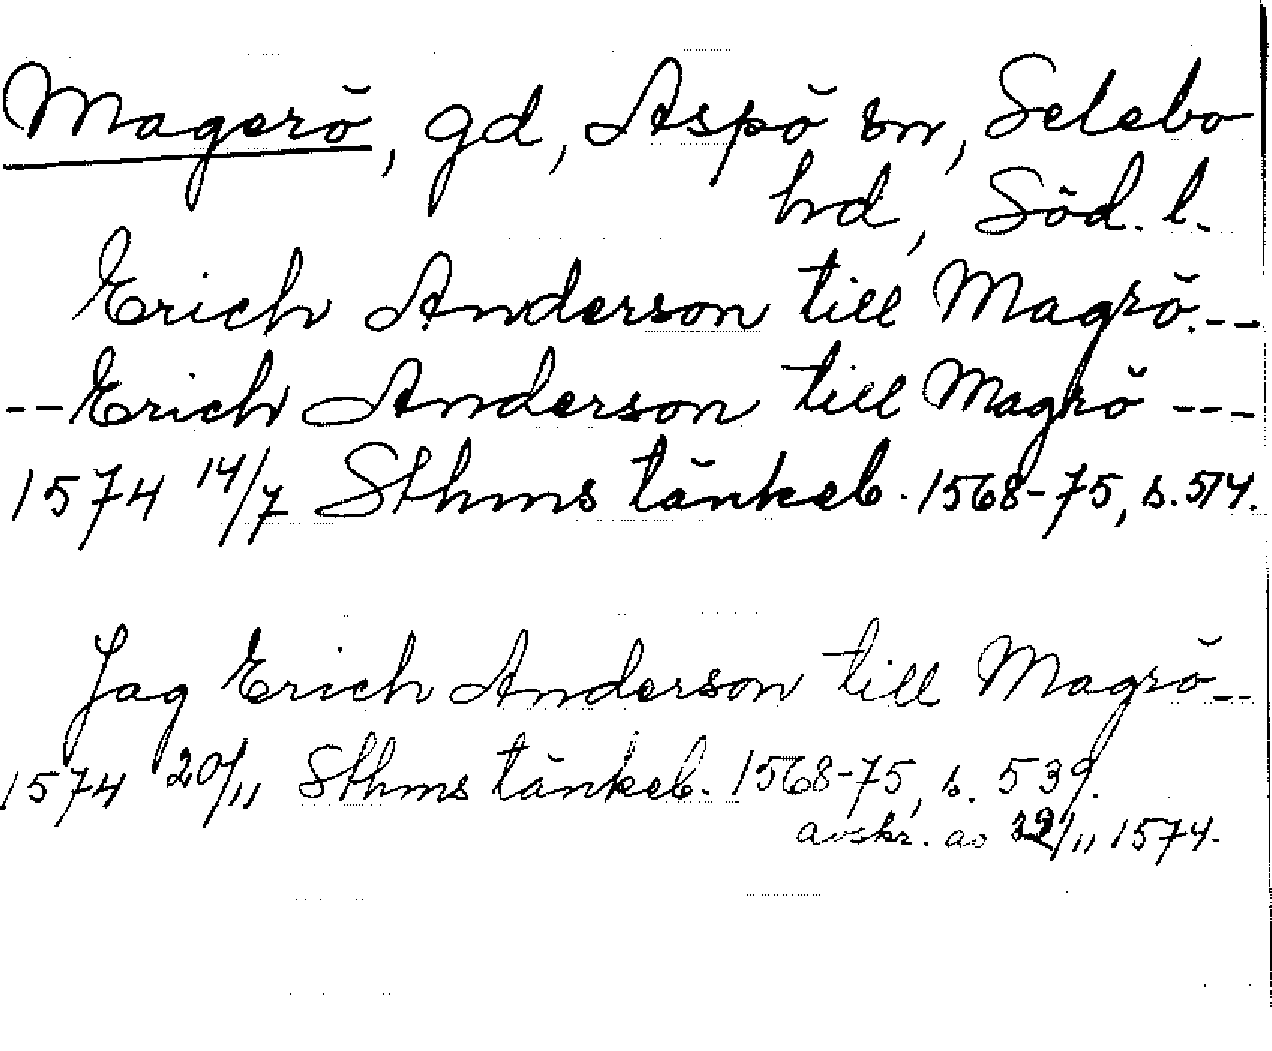 Magerö, gd, Aspö sn, Selebo
hd, Söd. l.
Erich Anderson till Magrö.--
--Erich Anderson till Magrö ---
1574 14/7 Sthms tänkeb. 1568-75, s. 514.
Jag Erich Anderson till Magrö--
1574 20/11 Sthms tänkeb. 1568-75, s. 539.
avskr. av /11 1574.